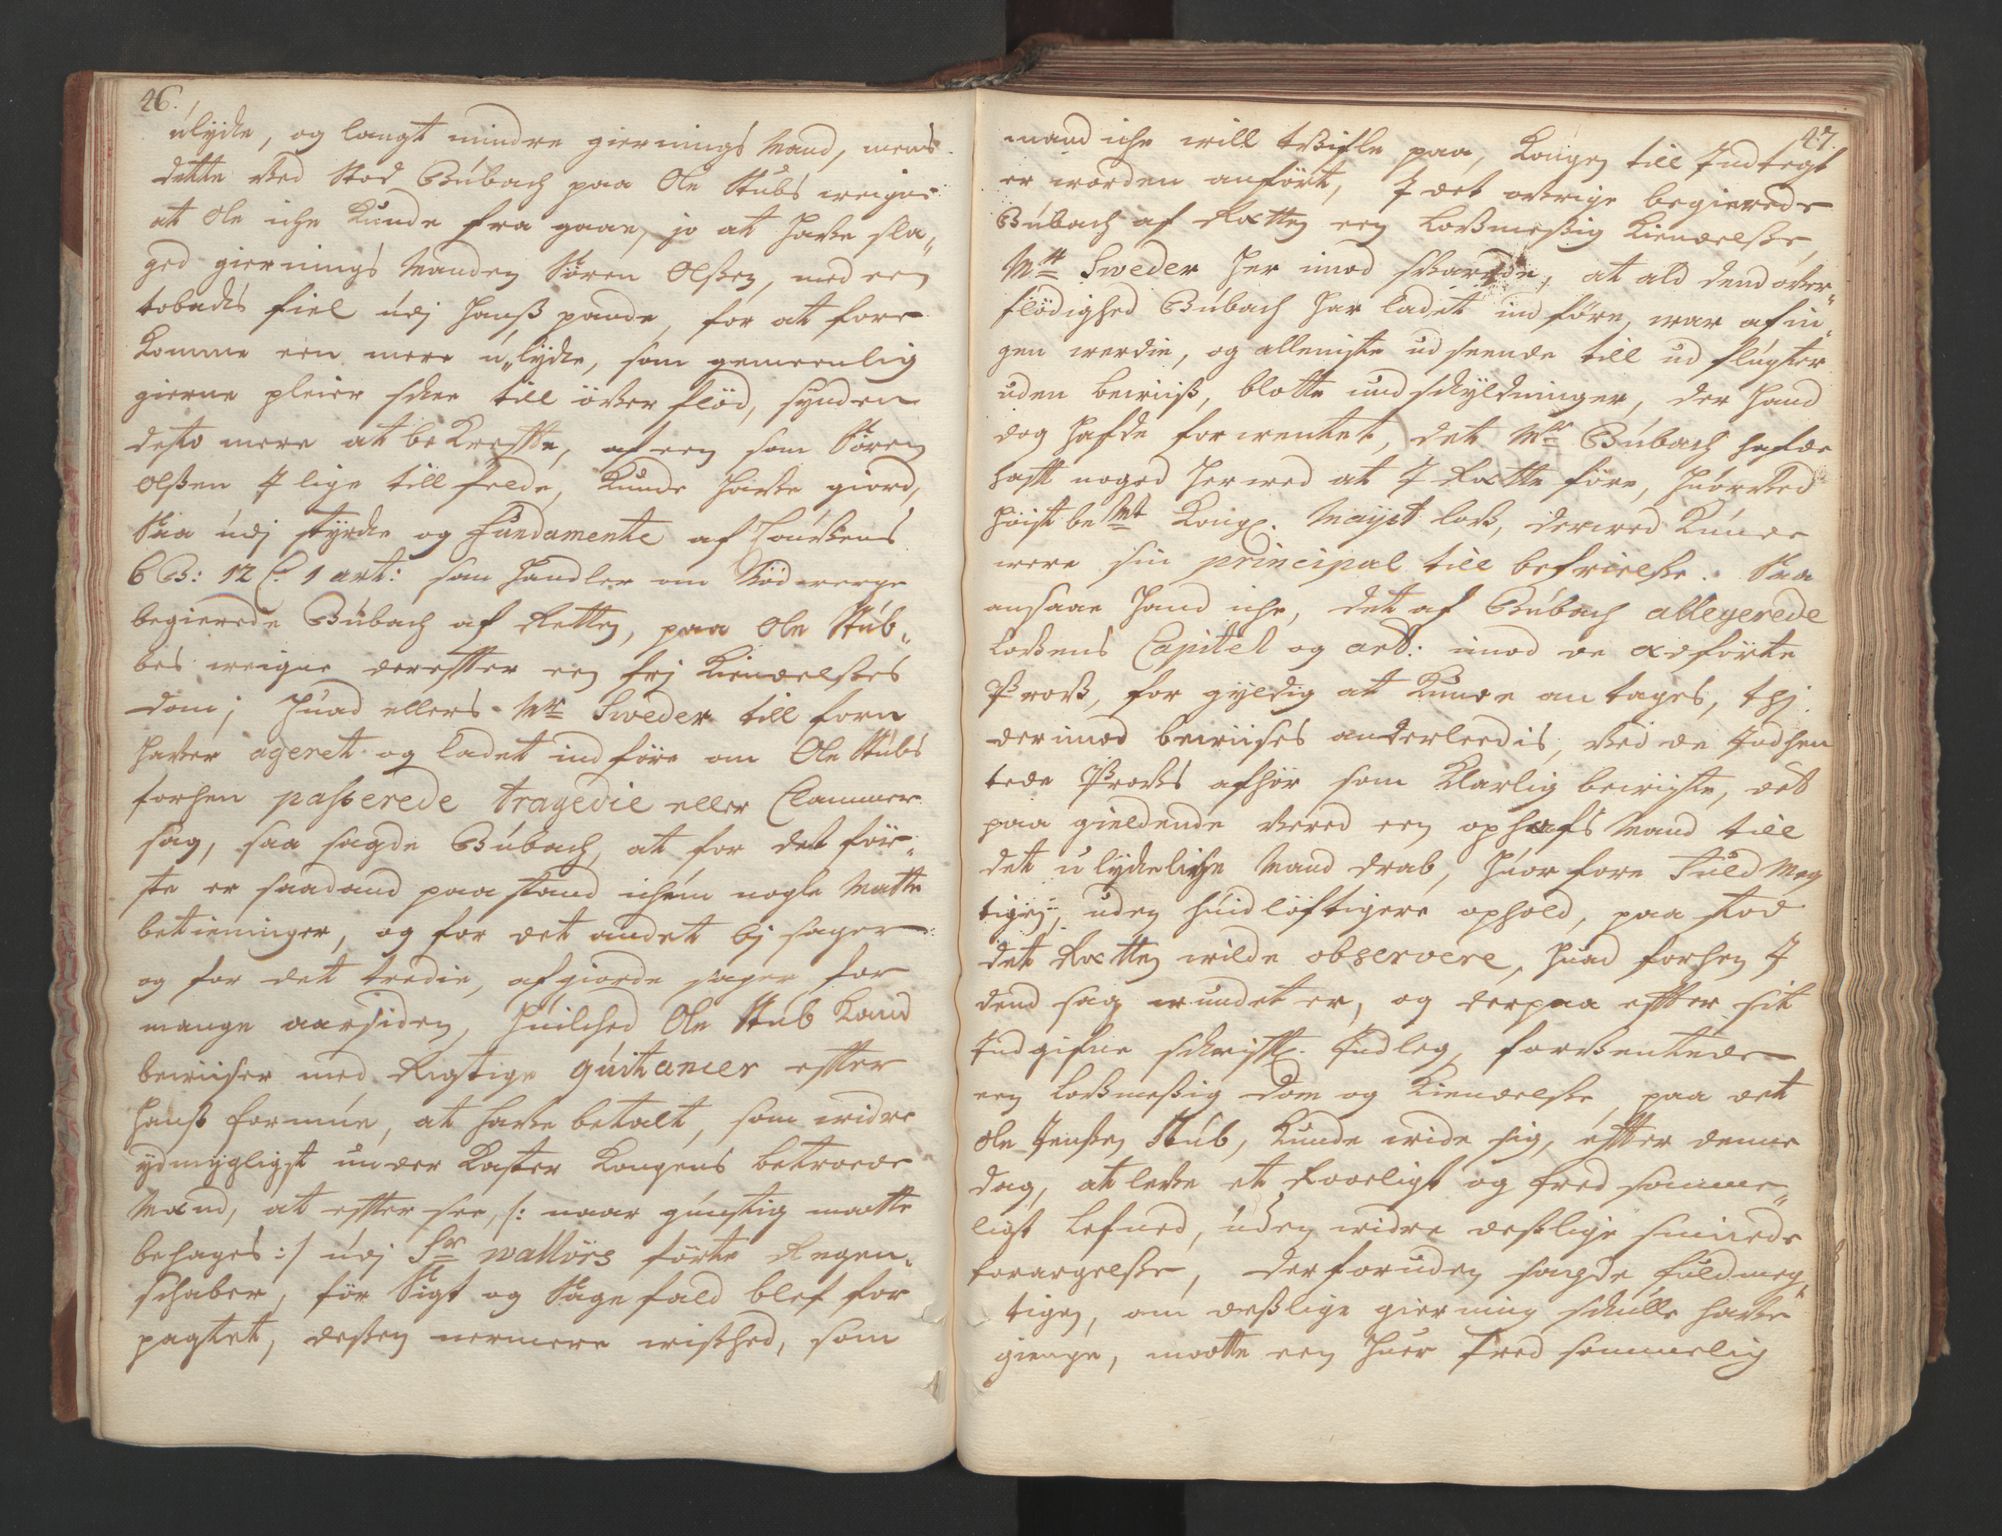 26.
ulycke, og langt mindre giernings Mand, mens
dette ved stod Bubach paa Ole Stubs weigne
at Ole iche kunde fra gaae, jo at hafve sla„
ged giernings Manden Sören Olssen, med een
tobacks fiel udj hans pande, for at fore
komme een mere u„lycke, som gemeenlig
gierne pleier skee till öfver flöd, synden
desto mere at bekrefte, af een som Sören
Olssen J lige tillfelde, kunde hafve giord,
Saa udj styrcke og fundamente af Lougens
6 B: 12 C. 1 art: som handler om Nödwerge
begierede Bubach af Retten, paa Ole Stub„
bes weigne derefter een frj kiendelses
dom; huad ellers Mr. Sweder till forn
hafver ageret og ladet indföre om Ole Stubs
forhen passerede tragedie eller Clammer
sag, saa sagde Bubach, at for det för„
ste er saadand paastand ichun nogle Matte
betieninger, og for det andet bj sager
og for det tredie, afgiorde sager for
mange aar siden, huilched Ole Stub kand
bewiiser med Rigtige quitancer efter
hans formue, at hafve betalt, som widre
ydmygligst under kaster kongens betroede
Mænd, at efter see, /: naar gunstig maatte
behages :/ udj Sr. wallörs förte Regen„
schaber, för Sigt og Sage fald blef for
pagtet, dessen nermere wished, som
27.
mand iche will tvifle paa, kongen till Indtegt
er worden anfört, J det ovrige begierede
Bubach af Retten een lovmessig kiendelse,
Mr. Sweder her imod svarede, at ald dend over„
flödighed Bubach har ladet indföre, war af in„
gen werdie, og alleniste udseende till udflugter
uden bewiis, blotte undschyldninger, der hand
dog hafde forwentet, det Mr. Bubach hafde
hafft noged herwed at J Rette före, huorved
höist bemt. Kongl. Mayst. lov, derwed kunde
were sin principal till befrielse. Saa
ansaae hand iche, det af Bubach allegerede
Lovens Capitel og art: imod de adförte
Prov, for gyldig at kunde antages, thj
derimod bewiises anderleedis, ved de Indhen
tede Provs afhör som klarlig bewiste, det
paa gieldende vered een ophafs Mand till
det ulyckelige Mand drab, huorfore Fuld Meg
tigen, uden huidlöftigere ophold, paa stod
det Retten wilde observere, huad forhen J
dend sag wundet er, og derpaa efter sit
Indgifne schriftl. Indleg, forventede
een lovmessig dom og kiendelse, paa det
Ole Jensen Stub, kunde wide sig, efter denne
dag, at lefve et Roeligt og fred somme„
ligt lefned, uden widre deslige sinnede
forargelse, derforuden sagde fuldmeg„
tigen, om deslige gierning skulle hafve
gienge, maatte een huer fred sommelig